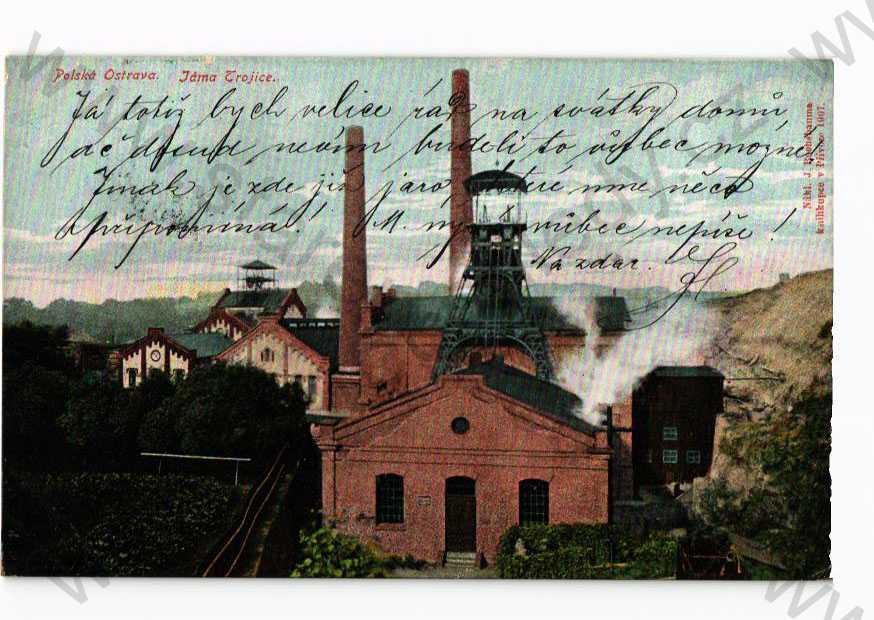 Polská Ostrava. Jáma Trojice.
Já totiž bych velice rád na svátky domů,
ač dosud nevím budeli to vůbec možné.
Jinak je zde již jaro, které mne něco
připomíná! M. nyní vůbec nepíše!
Na zdar.
Nákl. J.
knihkupce v Přívoze 1907.